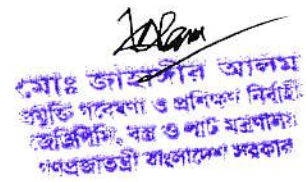 মোঃ জাহাঙ্গীর আলম
গবেষণা ও প্রশিক্ষণ নির্বাহী
জেডিপিসি, বস্ত্র ও পাট মন্ত্রণালয়
গণপ্রজাতন্ত্রী বাংলাদেশ সরকার